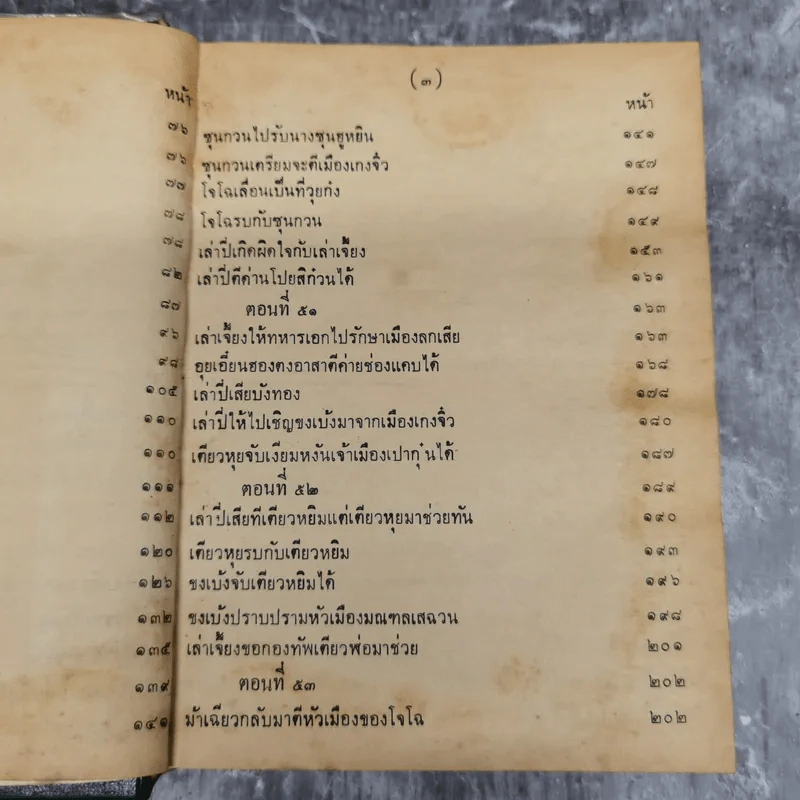 (๓)
หน้า
หน้า
๗๖
๗๖
๗๗
๗๘
๗๘
๘๒
๘๗
๙๖
๙๘
๑๐๕
๑๑๐
๑๑๐
๑๑๑
๑๑๒
๑๒๐
๑๒๖
๑๓๒
๑๓๕
๑๓๙
๑๔๑
ซุนกวนไปรับนางซุนฮูหยิน ๑๔๑
ซุนกวนเตรียมจะตีเมืองเกงจิ๋ว ๑๔๗
โจโฉเลื่อนเป็นที่วุยก๋ง ๑๔๘
โจโฉรบกับซุนกวน ๑๔๙
เล่าปี่เกิดผิดใจกับเล่าเจี้ยง ๑๕๓
เล่าปี่ตีด่านโปยสิก๋วนได้ ๑๖๑
ตอนที่ ๕๑ ๑๖๓
เล่าเจี้ยงให้ทหารเอกไปรักษาเมืองลกเสีย ๑๖๓
อุยเอี๋ยนฮองตงอาสาตีค่ายช่องแคบได้ ๑๖๘
เล่าปี่เสียบังทอง ๑๗๘
เล่าปี่ให้ไปเชิญขงเบ้งมาจากเมืองเกงจิ๋ว ๑๘๐
เตียวหุยจับเงียมหงันเจ้าเมืองเปากุ๋นได้ ๑๘๗
ตอนที่ ๕๒ ๑๘๙
เล่าปี่เสียทีเตียวหยิมแต่เตียวหุยมาช่วยทัน ๑๙๐
เตียวหุยรบกับเตียวหยิม ๑๙๓
ขงเบ้งจับเตียวหยิมได้ ๑๙๖
ขงเบ้งปราบปรามหัวเมืองมณฑลเสฉวน ๑๙๘
เล่าเจี้ยงขอกองทัพเตียวฬ่อมาช่วย ๒๐๑
ตอนที่ ๕๓ ๒๐๒
ม้าเฉียวกลับมาตีหัวเมืองของโจโฉ ๒๐๒